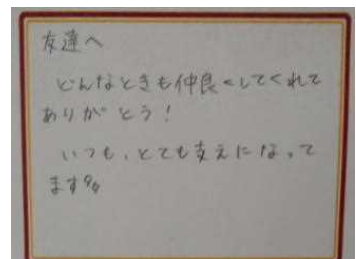 友達へ
どんなときも仲良くしてくれて
ありがとう!
いつも、とても支えになって
ます